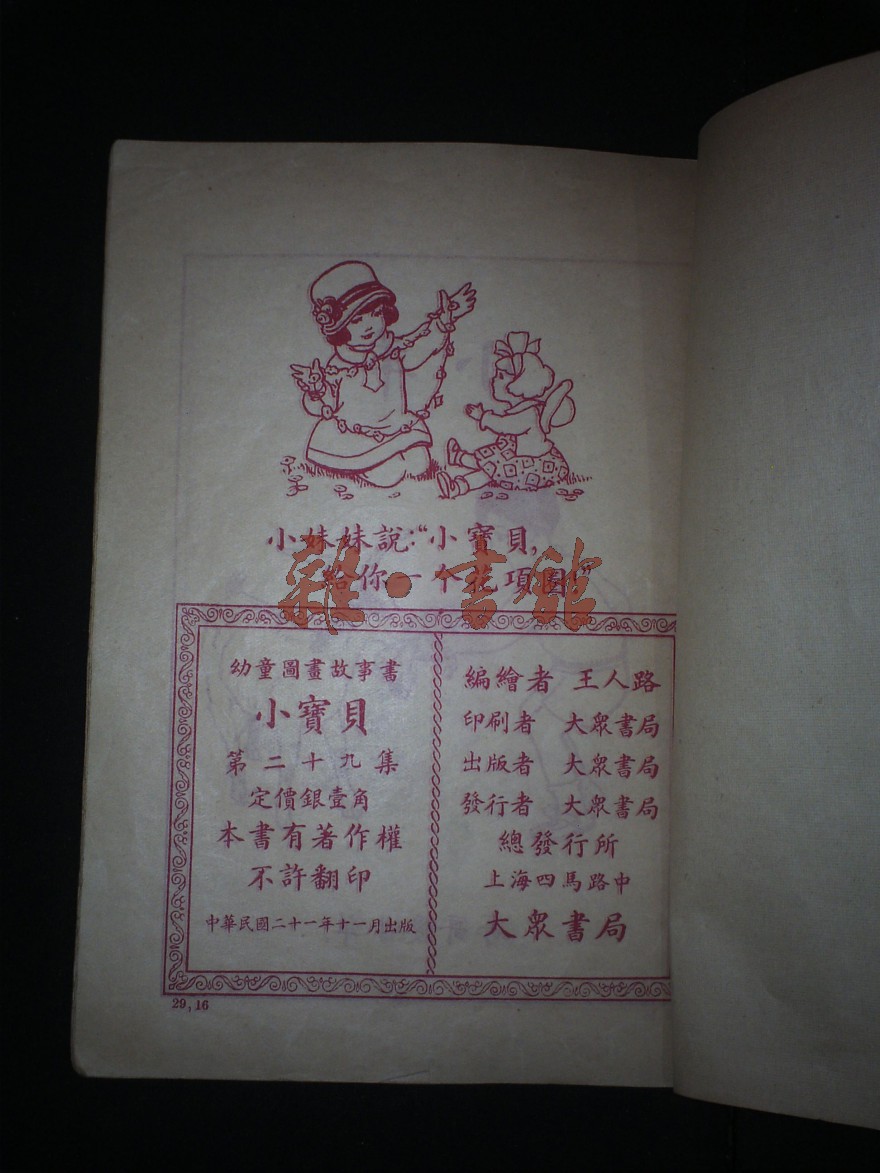 小妹妹說:“小寶貝,
給你一个花項圈!”
雜·書館
幼童圖畫故事書
小寶貝
第二十九集
定價銀壹角
本書有著作權
不許翻印
中華民國二十一年十一月出版
編繪者 王人路
印刷者 大眾書局
出版者 大眾書局
發行者 大眾書局
總發行所
上海四馬路中
大眾書局
29,16